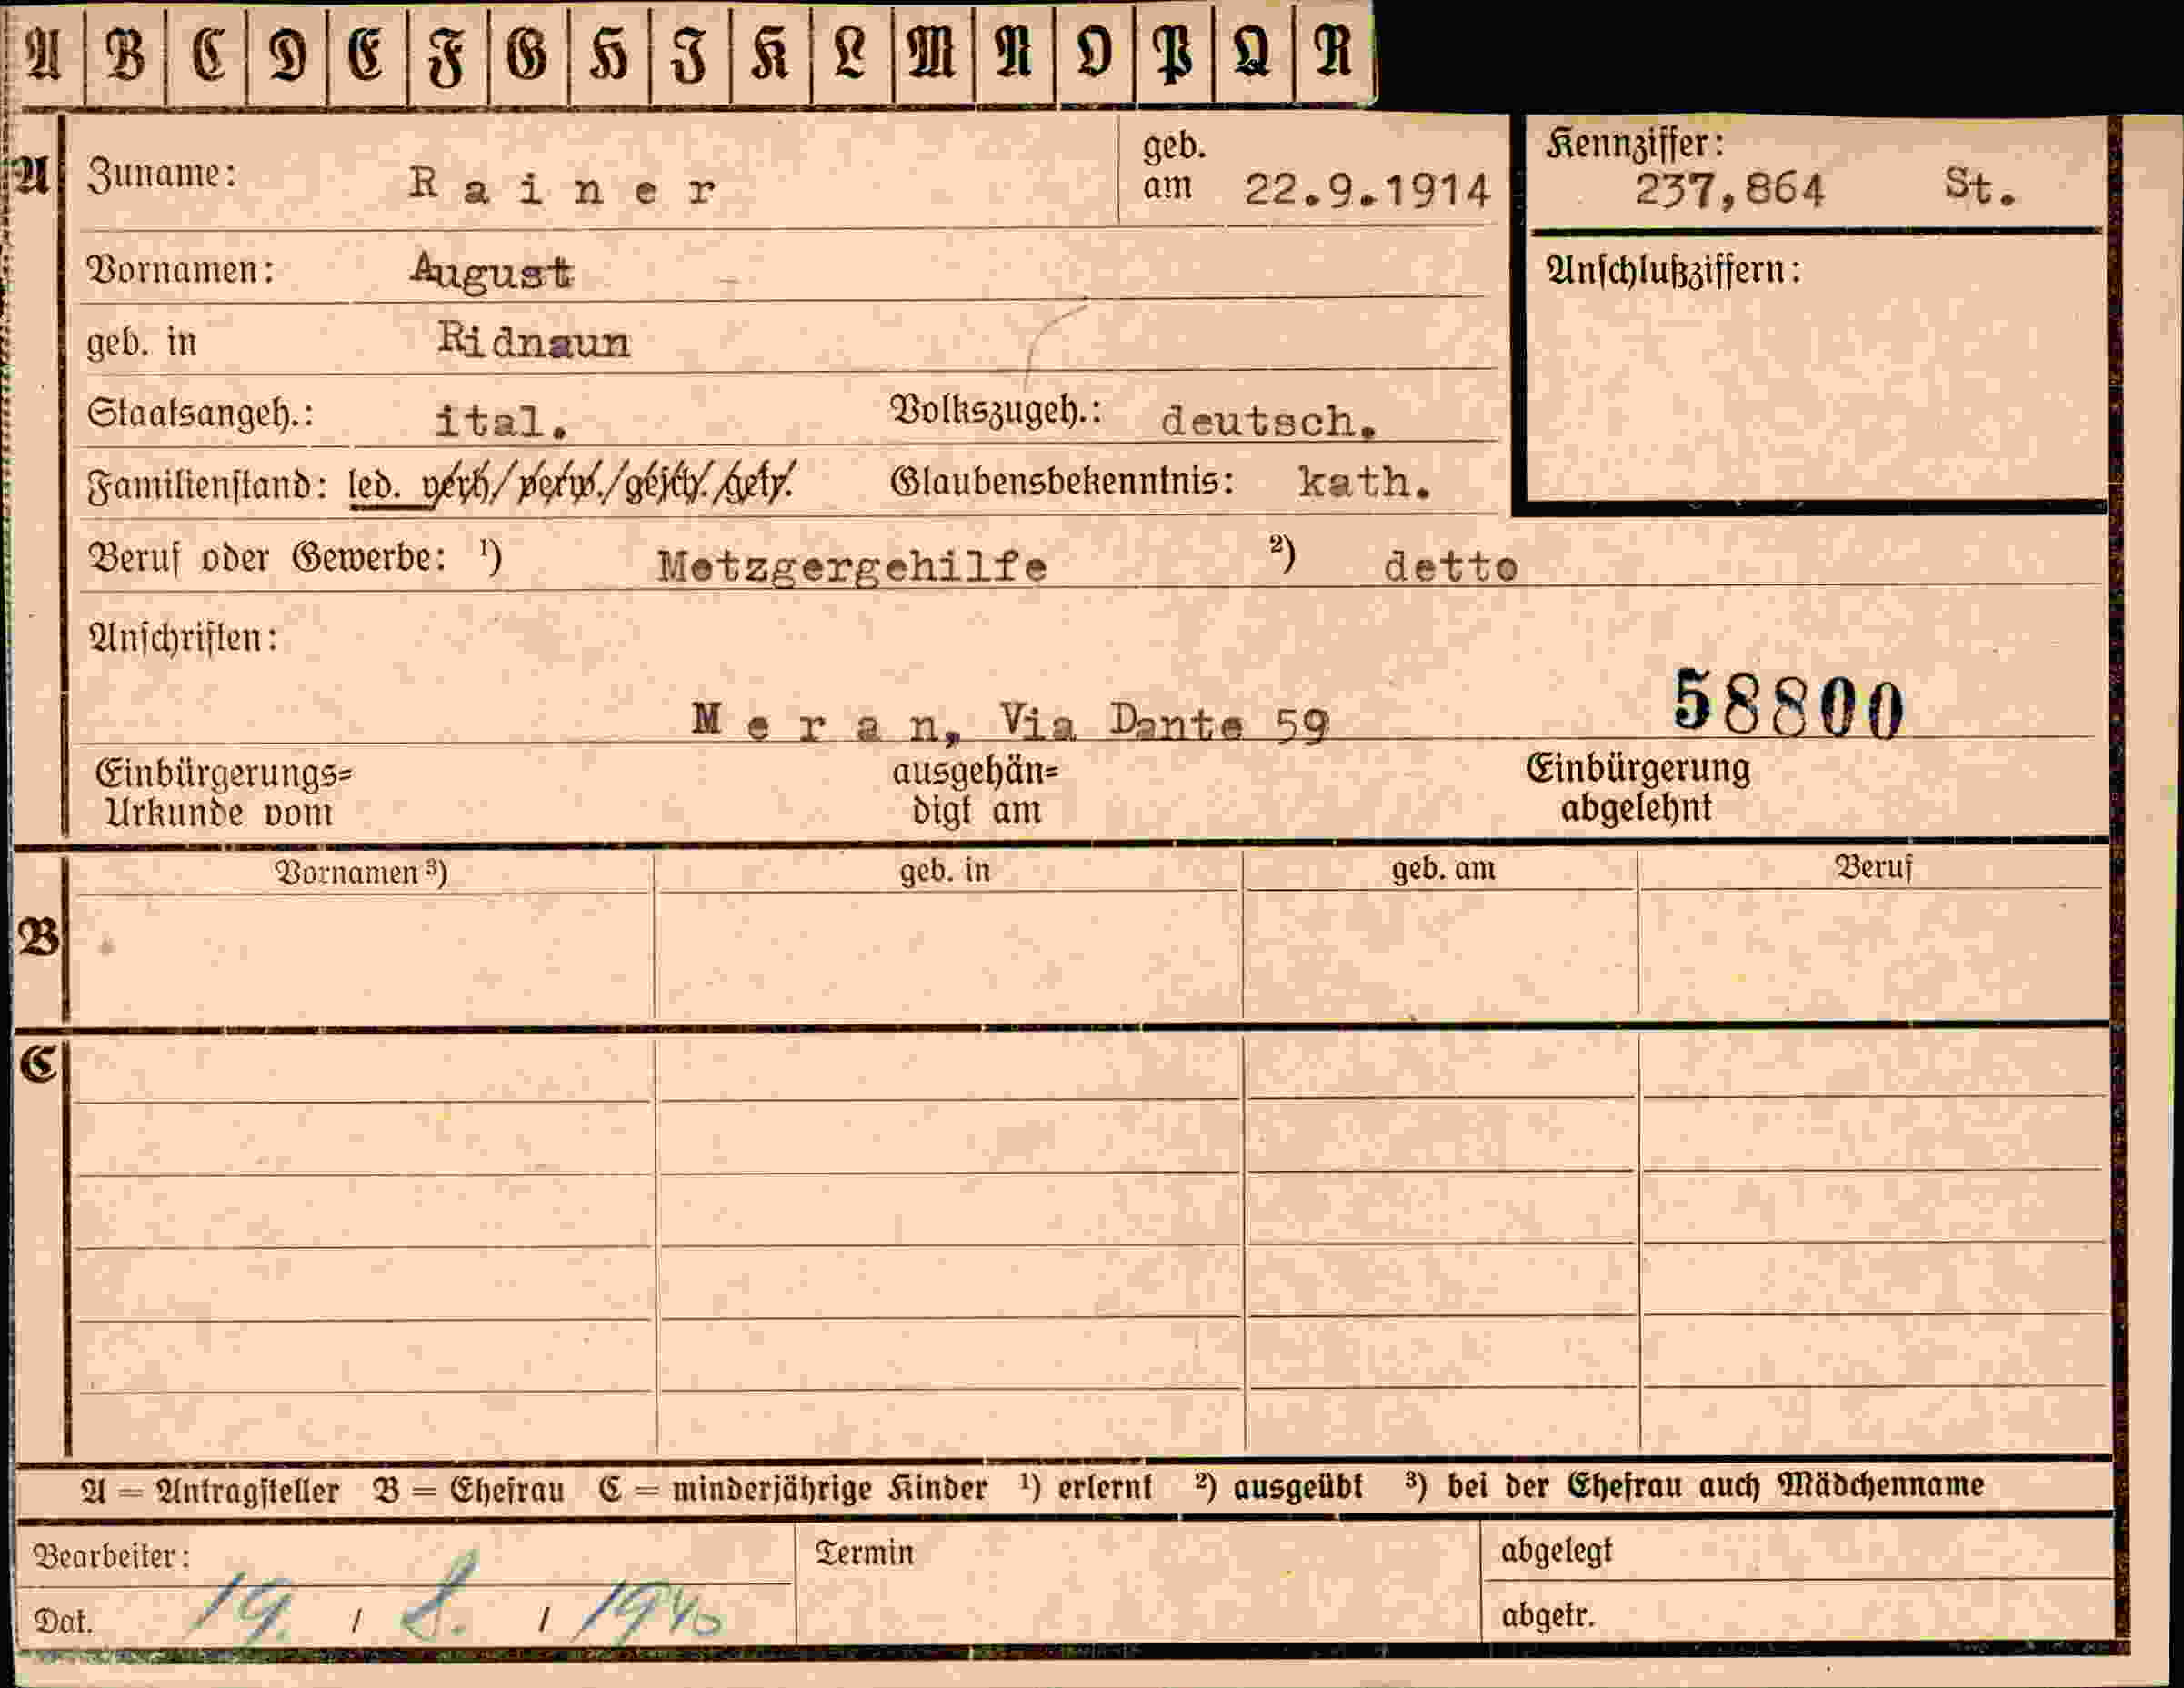 A B C D E F G H J K L M N O P Q R
A Zuname: Rainer geb. am 22.9.1914 Kennziffer: 237,864 St.
Vornamen: August Anschlußziffern:
geb. in Ridnaun
Staatsangeh.: ital. Volkszugeh.: deutsch.
Familienstand: led. verh./verw./gesch./getr. Glaubensbekenntnis: kath.
Beruf oder Gewerbe: ¹) Metzgergehilfe ²) detto
Anschriften:
Meran, Via Dante 59 58800
Einbürgerungs= ausgehän= Einbürgerung
Urkunde vom digt am abgelehnt
Vornamen ³) geb. in geb. am Beruf
B
C
A = Antragsteller B = Ehefrau C = minderjährige Kinder ¹) erlernt ²) ausgeübt ³) bei der Ehefrau auch Mädchenname
Bearbeiter: Termin abgelegt
Dat. 19. / 8. / 1940 abgetr.